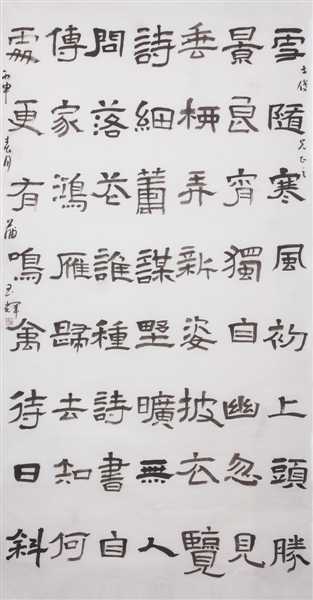 士俊兄正之
雪隨寒風初上頭勝
景良宵獨自幽忽見
垂柳弄新姿披衣覽
詩細謀野曠無人
問落花誰種詩書自
傳家鴻雁歸去知何
處更有鳴禽待日斜
丙申春月蒲玉輝